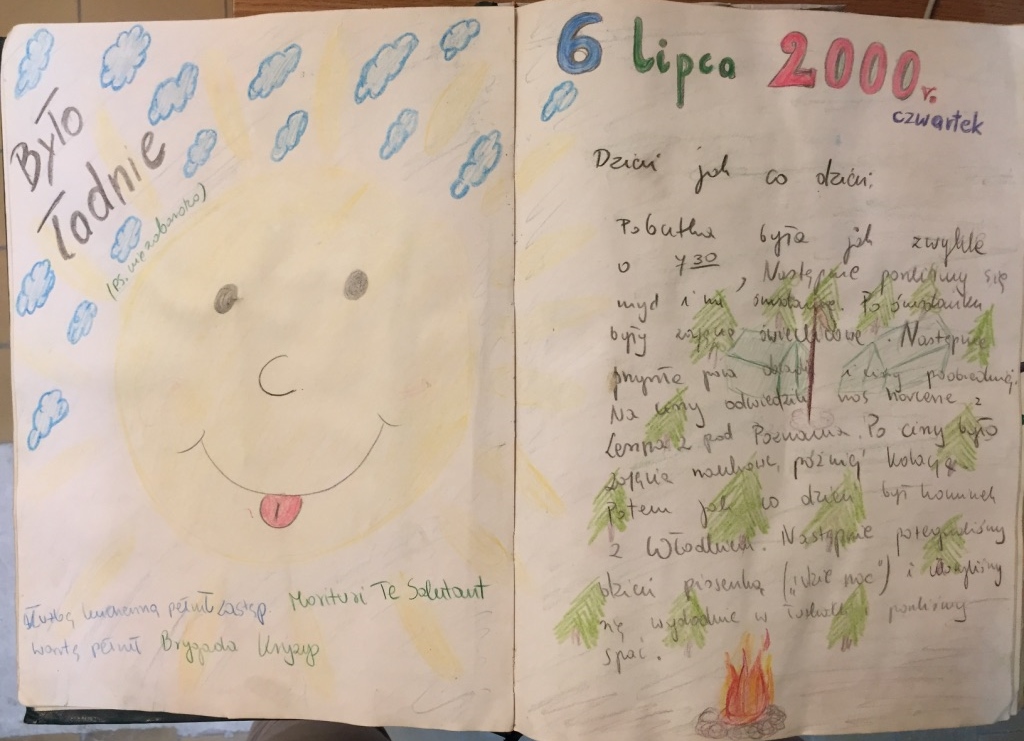 Było
ładnie
(Ps. nie za bardzo)
służbę kuchenną pełnił zastęp Morituri Te Salutant
wartę pełnił Brygada Kryzys
6 Lipca 2000 r.
czwartek
Dzień jak co dzień:
Pobudka była jak zwykle
o 7 30, Następnie poszliśmy się
myć i na śniadanie. Po śniadaniu
były zajęcia świetlicowe. Następnie
przyszła pora obiadu i ciszy poobiedniej.
Na ciszy odwiedzili nas harcerze z
pod Poznania. Po ciszy było
zajęcia naukowe, później kolacja
Potem jak co dzień był kominek
z Włodkiem. Następnie pożegnaliśmy
dzień piosenką ("idzie noc") i
się wygodnie w i poszliśmy
spać.